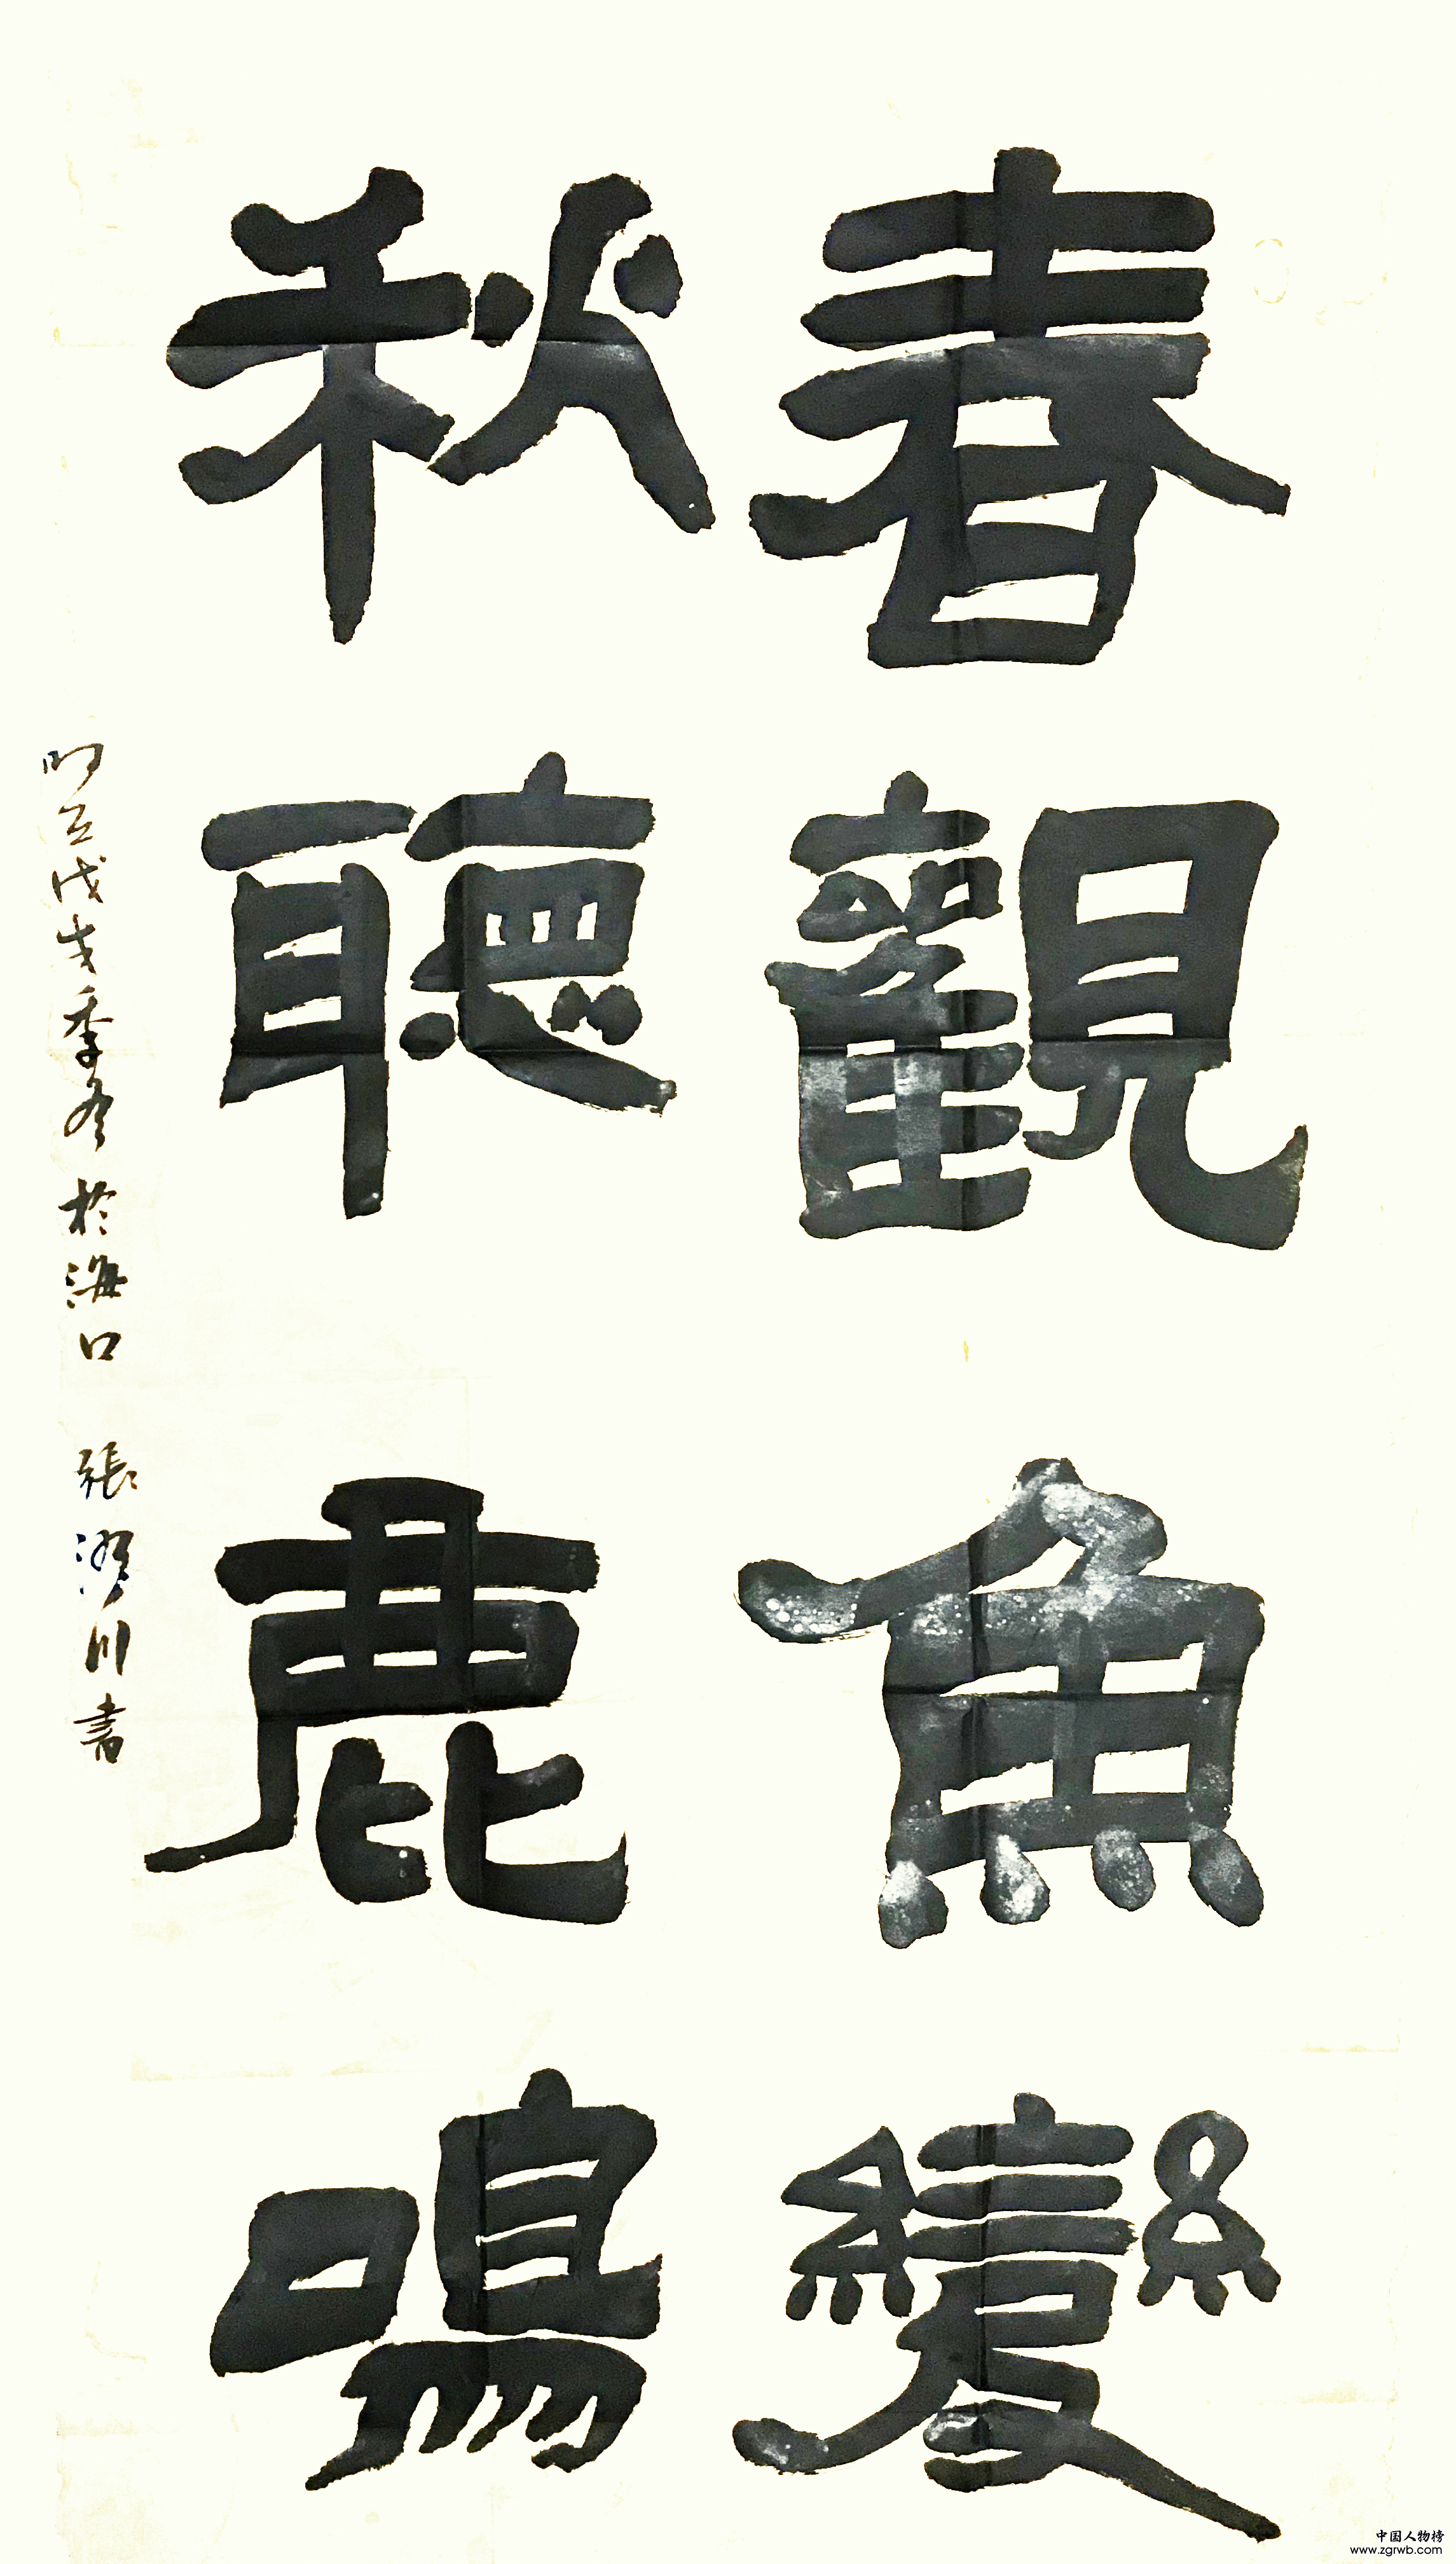 春觀魚變
秋聽鹿鳴
戊戌季冬於海口 張 川書
中国人物榜
www.zgrwb.com